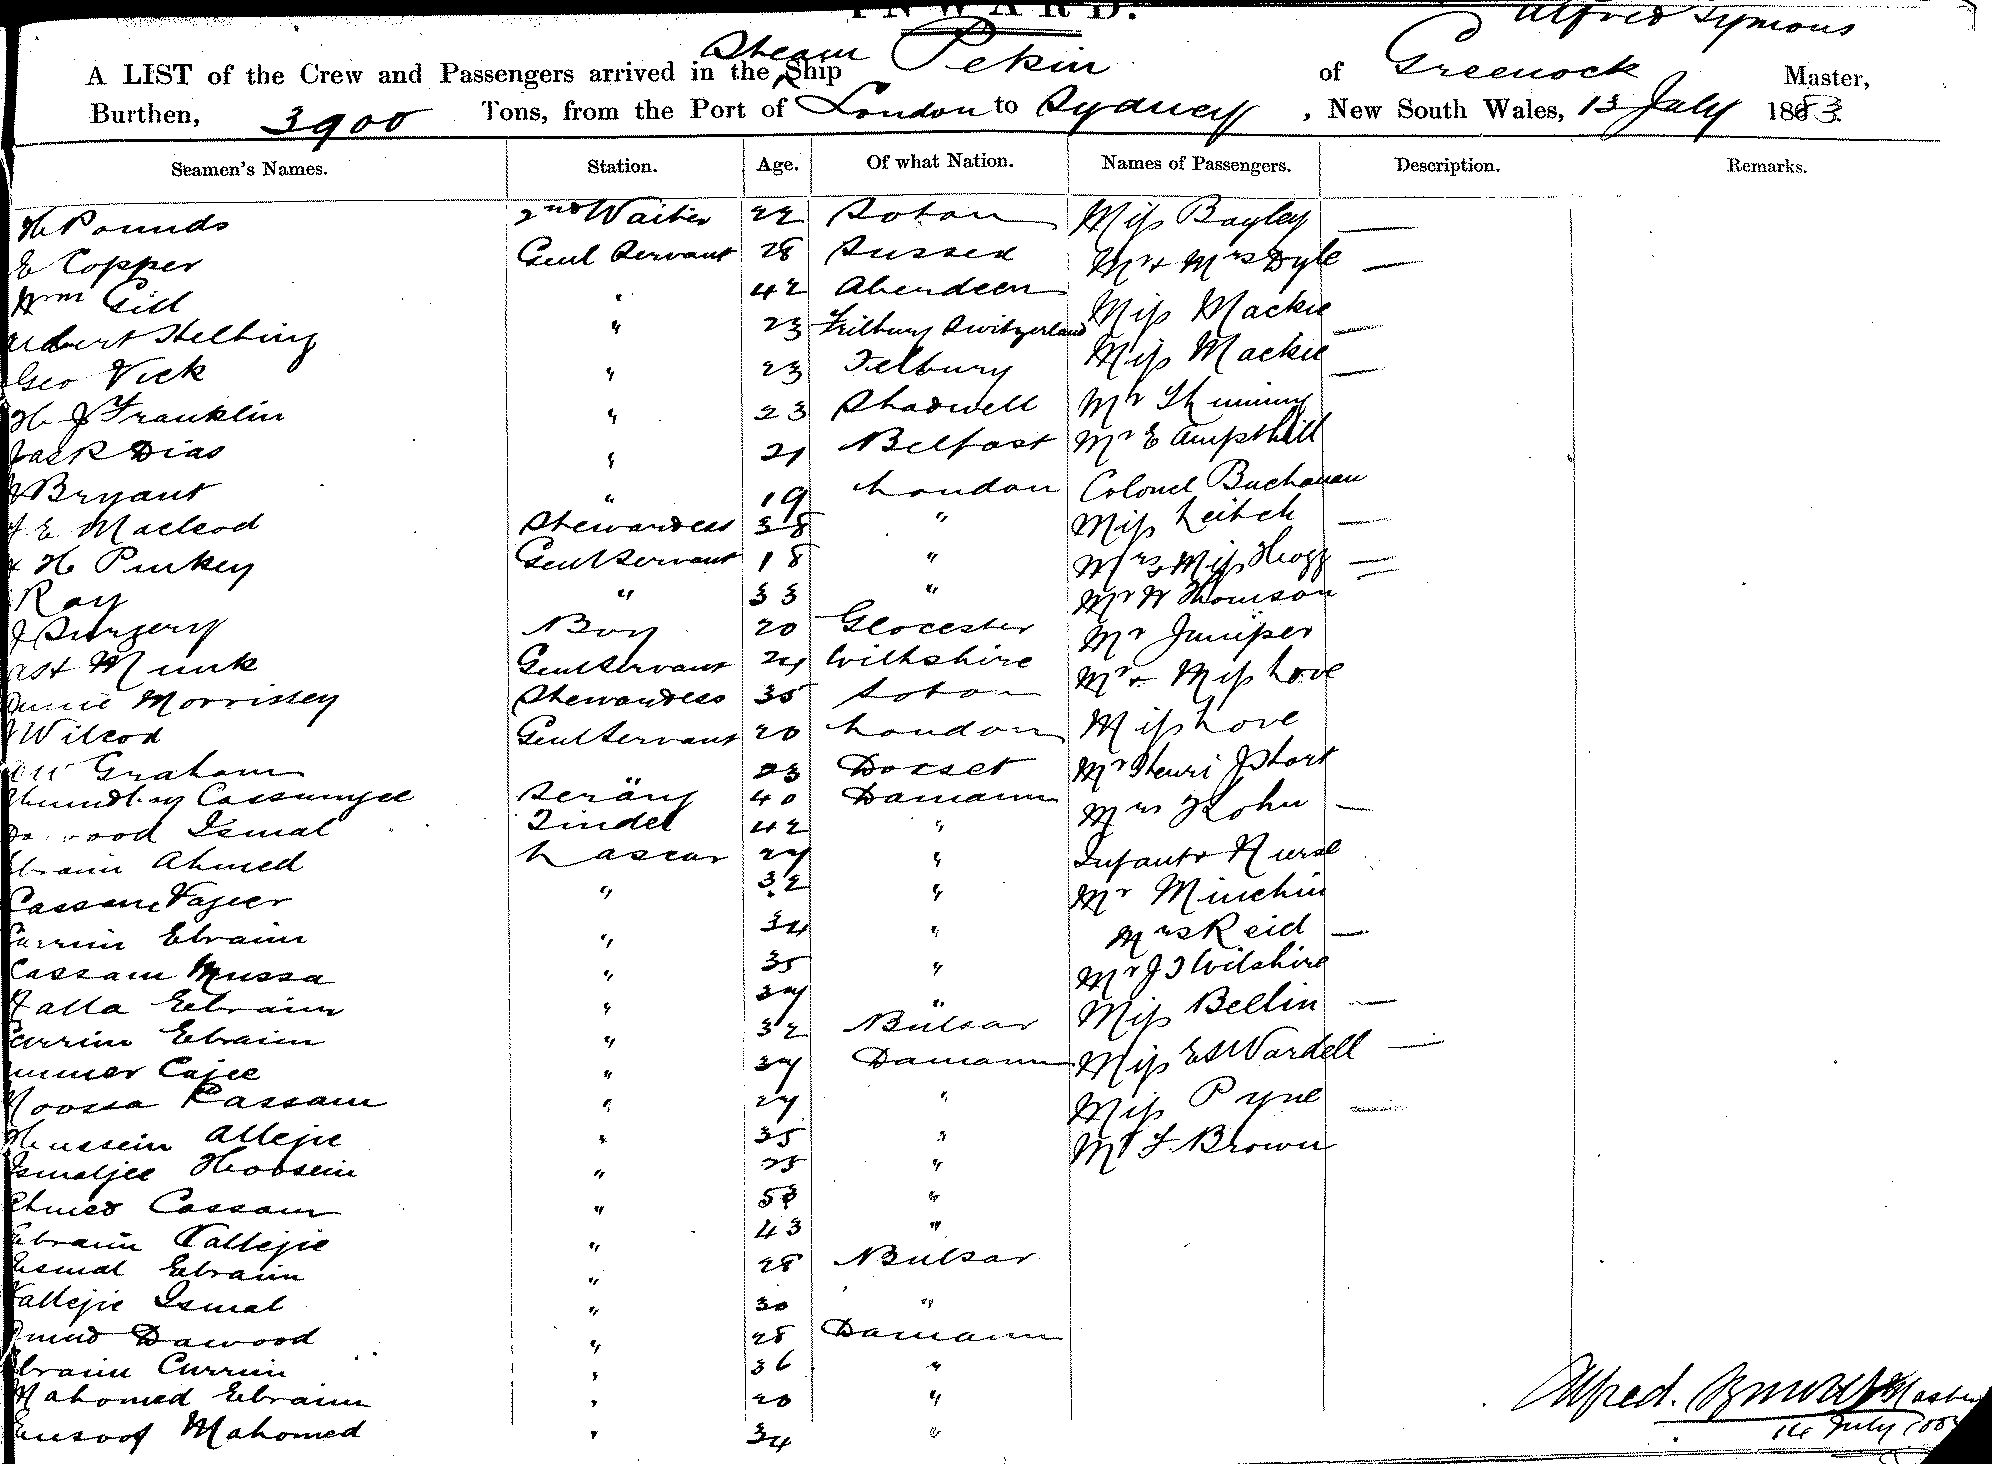 INWARD.
Alfred Symons
A LIST of the Crew and Passengers arrived in the Steam Ship Pekin of Greenock Master,
Burthen, 3900 Tons, from the Port of London to Sydney, New South Wales, 13 July 1883.
Seamen's Names. Station. Age. Of what Nation. Names of Passengers. Description. Remarks.
H Pounds 2nd Waiter 22 Soton Miss Bayley —
E Copper Genl Servant 28 Sussex Mr & Mrs Dyle —
Wm Gill " 42 Aberdeen Miss Mackie —
Helbing " 23 Switzerland Miss Mackie —
Geo Vick " 23 Tetbury Mr
H J Franklin " 23 Shadwell Mr E Ampthill
Jack Dias " 21 Belfast Colonel Buchanan
Bryant " 19 London Miss Leitch —
E Macleod Stewardess 38 " Mrs & Miss Hogg —
H Purkey Genl Servant 18 " Mr W Thomson
Ray " 33 " Mr Juniper
J Surgery Boy 20 Glocester Mr & Miss Love
Munk Genl Servant 24 Wiltshire Miss Love
Morrissey Stewardess 35 Soton Mr Henri J Short
Wilcox Genl Servant 20 London Mrs Kohn —
Graham 23 Dorset Infant & Nurse
Cassumjee Serang 40 Damaun Mr Minchin
Ismal Tindel 42 " Mrs Reid —
Ahmed Lascar 27 " Mr J T Wilshire
Cassam Vajeer " 32 " Miss Bellin —
Currim Ebraim " 34 " Miss E S Wardell —
Cassam Mussa " 35 " Miss Pyne —
Valla Eebraim " 37 " Mr F Brown
Currim Ebraim " 32 Bulsar
Cajee " 37 Damaun
Moossa Kassam " 27 "
Hussein Allejie " 35 "
Ismaljee Hoosein " 25 "
Ahmed Cassam " 53 "
Ebraim Vallejie " 43 "
Esmal Ebraim " 28 Bulsar
Vallejie Ismal " 30 "
Dawood " 28 Damaun
Ebraim Currim " 36 "
Mahomed Eebraim " 20 "
Eusoof Mahomed " 34 "
Alfred Symons Master
14 July 1883